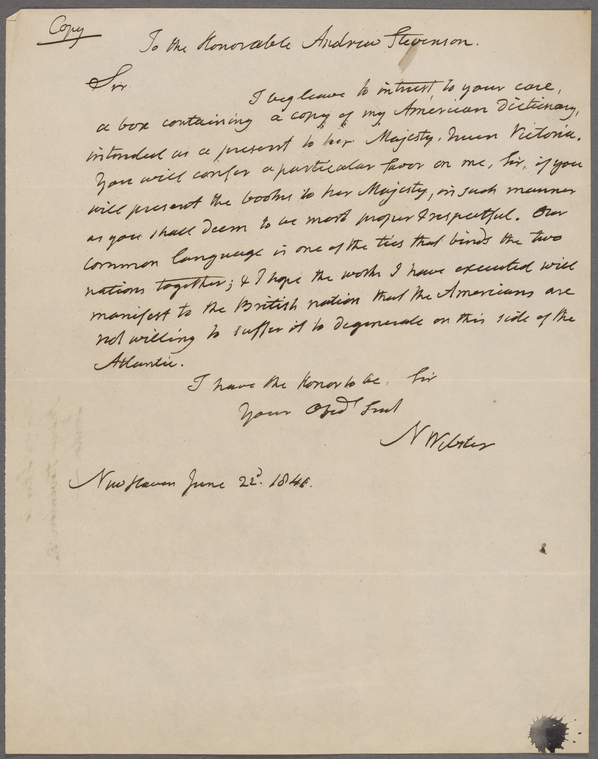 Copy
To the Honorable Andrew Stevenson.
Sir
I beg leave to intrust to your care,
a box containing a copy of my American Dictionary,
intended as a present to her Majesty, Queen Victoria.
You will confer a particular favor on me, Sir, if you
will present the books to her Majesty, in such manner
as you shall deem to be most proper & respectful. Our
common language is one of the ties that binds the two
nations together; & I hope the works I have executed will
manifest to the British nation that the Americans are
not willing to suffer it to degenerate on this side of the
Atlantic.
I have the Honor to be, Sir
Your Obed. Servt
N Webster
New Haven June 22d.